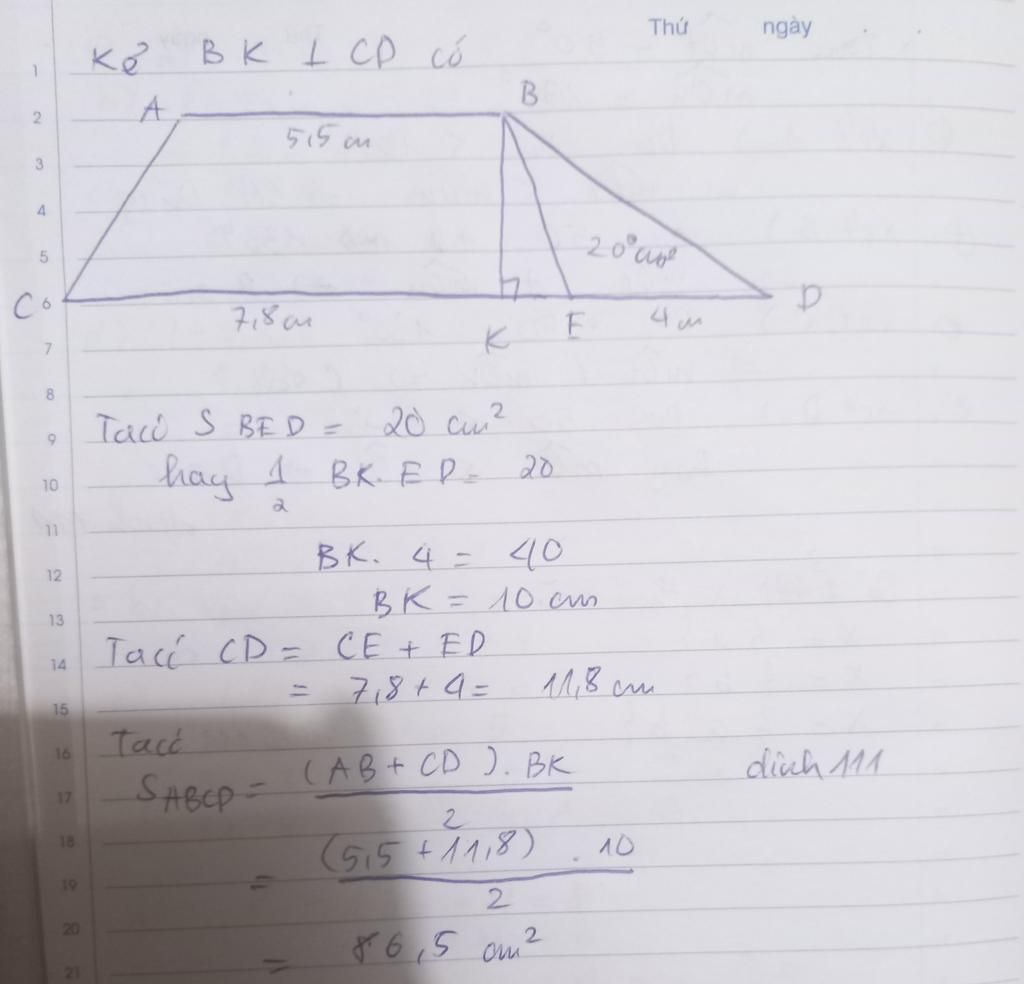 Thứ ngày
Kẻ BK ⊥ CD có
A B
5,5 cm
20 cm²
C D
7,8 cm K E 4 cm
Ta có S BED = 20 cm²
hay 1/2 BK. ED = 20
BK. 4 = 40
BK = 10 cm
Ta có CD = CE + ED
= 7,8 + 4 = 11,8 cm
Ta có
S ABCD = (AB + CD). BK / 2 dinh 111
= (5,5 + 11,8) . 10 / 2
= 86,5 cm²
1
2
3
4
5
6
7
8
9
10
11
12
13
14
15
16
17
18
19
20
21